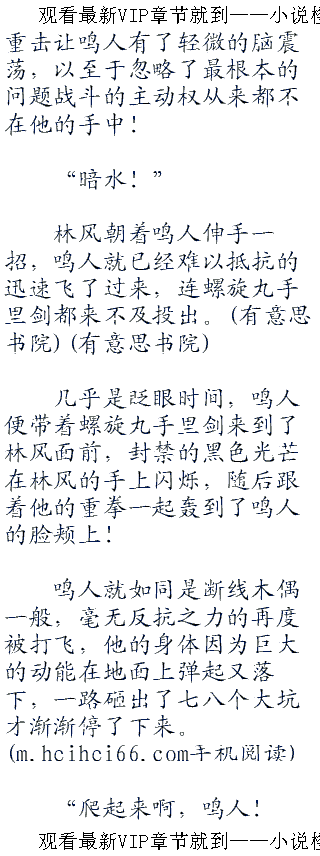 观看最新VIP章节就到——小说
重击让鸣人有了轻微的脑震
荡，以至于忽略了最根本的
问题战斗的主动权从来都不
在他的手中！
“暗水！”
林风朝着鸣人伸手一
招，鸣人就已经难以抵抗的
迅速飞了过来，连螺旋丸手
里剑都来不及投出。(有意思
书院)(有意思书院)
几乎是眨眼时间，鸣人
便带着螺旋丸手里剑来到了
林风面前，封禁的黑色光芒
在林风的手上闪烁，随后跟
着他的重拳一起轰到了鸣人
的脸颊上！
鸣人就如同是断线木偶
一般，毫无反抗之力的再度
被打飞，他的身体因为巨大
的动能在地面上弹起又落
下，一路砸出了七八个大坑
才渐渐停了下来。
(m.hcihci66.com手机阅读)
“爬起来啊，鸣人！
观看最新VIP章节就到——小说